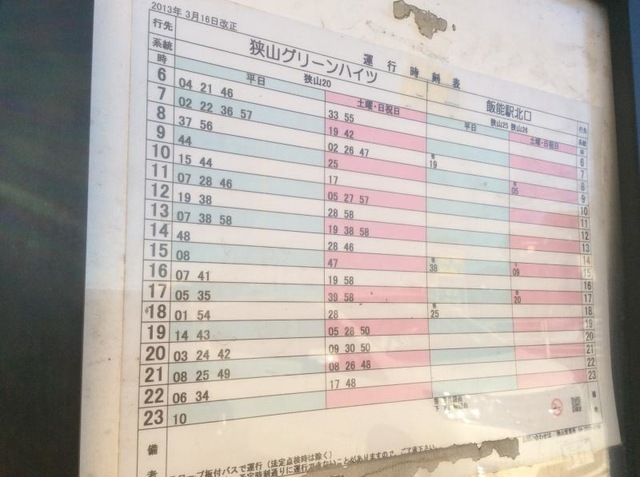 2013年 3月16日改正
運行時刻表
行先 狭山グリーンハイツ 飯能駅北口 行先
系統 狭山20 狭山25 狭山26 系統
時 平日 土曜・日祝日 平日 土曜・日祝日 時
6 04 21 46 33 55 6
7 02 22 36 57 19 42 7
8 37 56 02 26 47 19 8
9 44 25 05 9
10 15 44 17 10
11 07 28 46 05 27 57 11
12 19 38 28 58 12
13 07 38 58 19 38 58 13
14 48 28 46 14
15 08 47 38 09 15
16 07 41 19 58 16
17 05 35 39 58 20 17
18 01 54 28 25 18
19 14 43 05 28 50 19
20 03 24 42 09 30 50 20
21 08 25 49 08 26 48 21
22 06 34 17 48 22
23 10 23
備考 備考
ロープ板付バスで運行（法定点検時は除く）
予定時刻通りに運行できないことがありますので、ご了承下さい